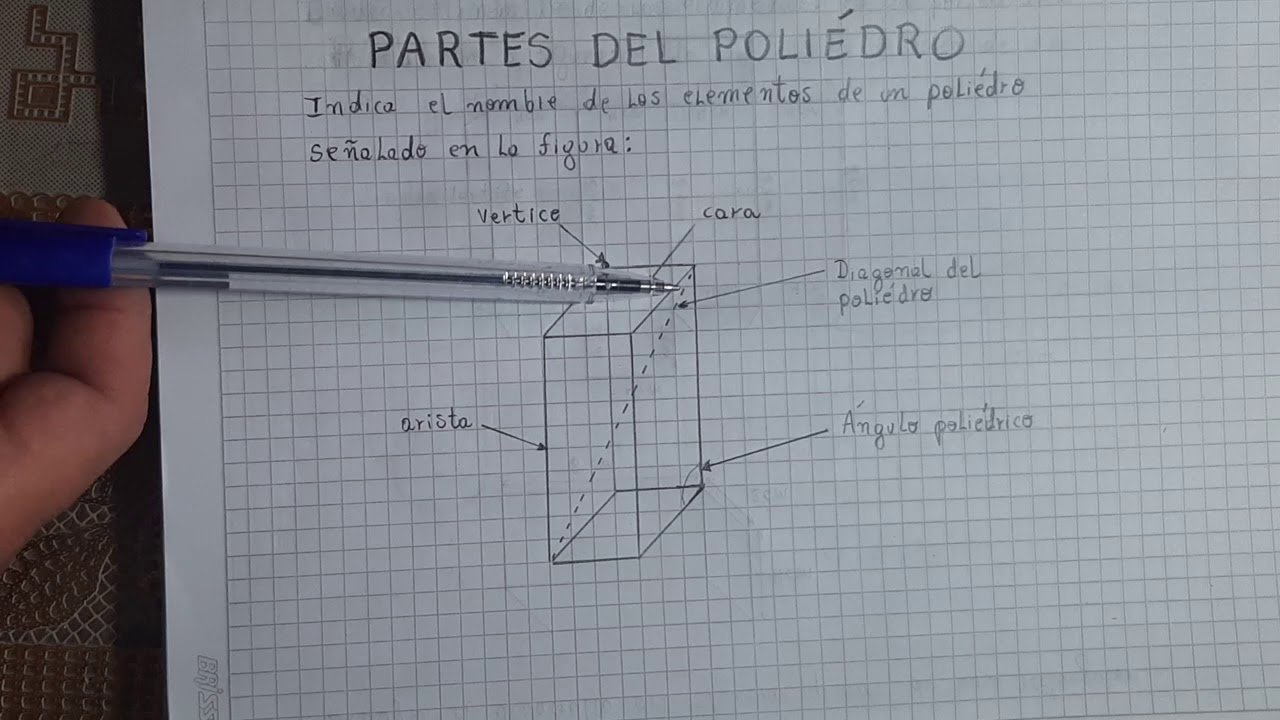 PARTES DEL POLIÉDRO
Indica el nombre de los elementos de un poliédro
señalado en la figura:
vertice
cara
Diagonal del
poliédro
arista
Ángulo poliédrico